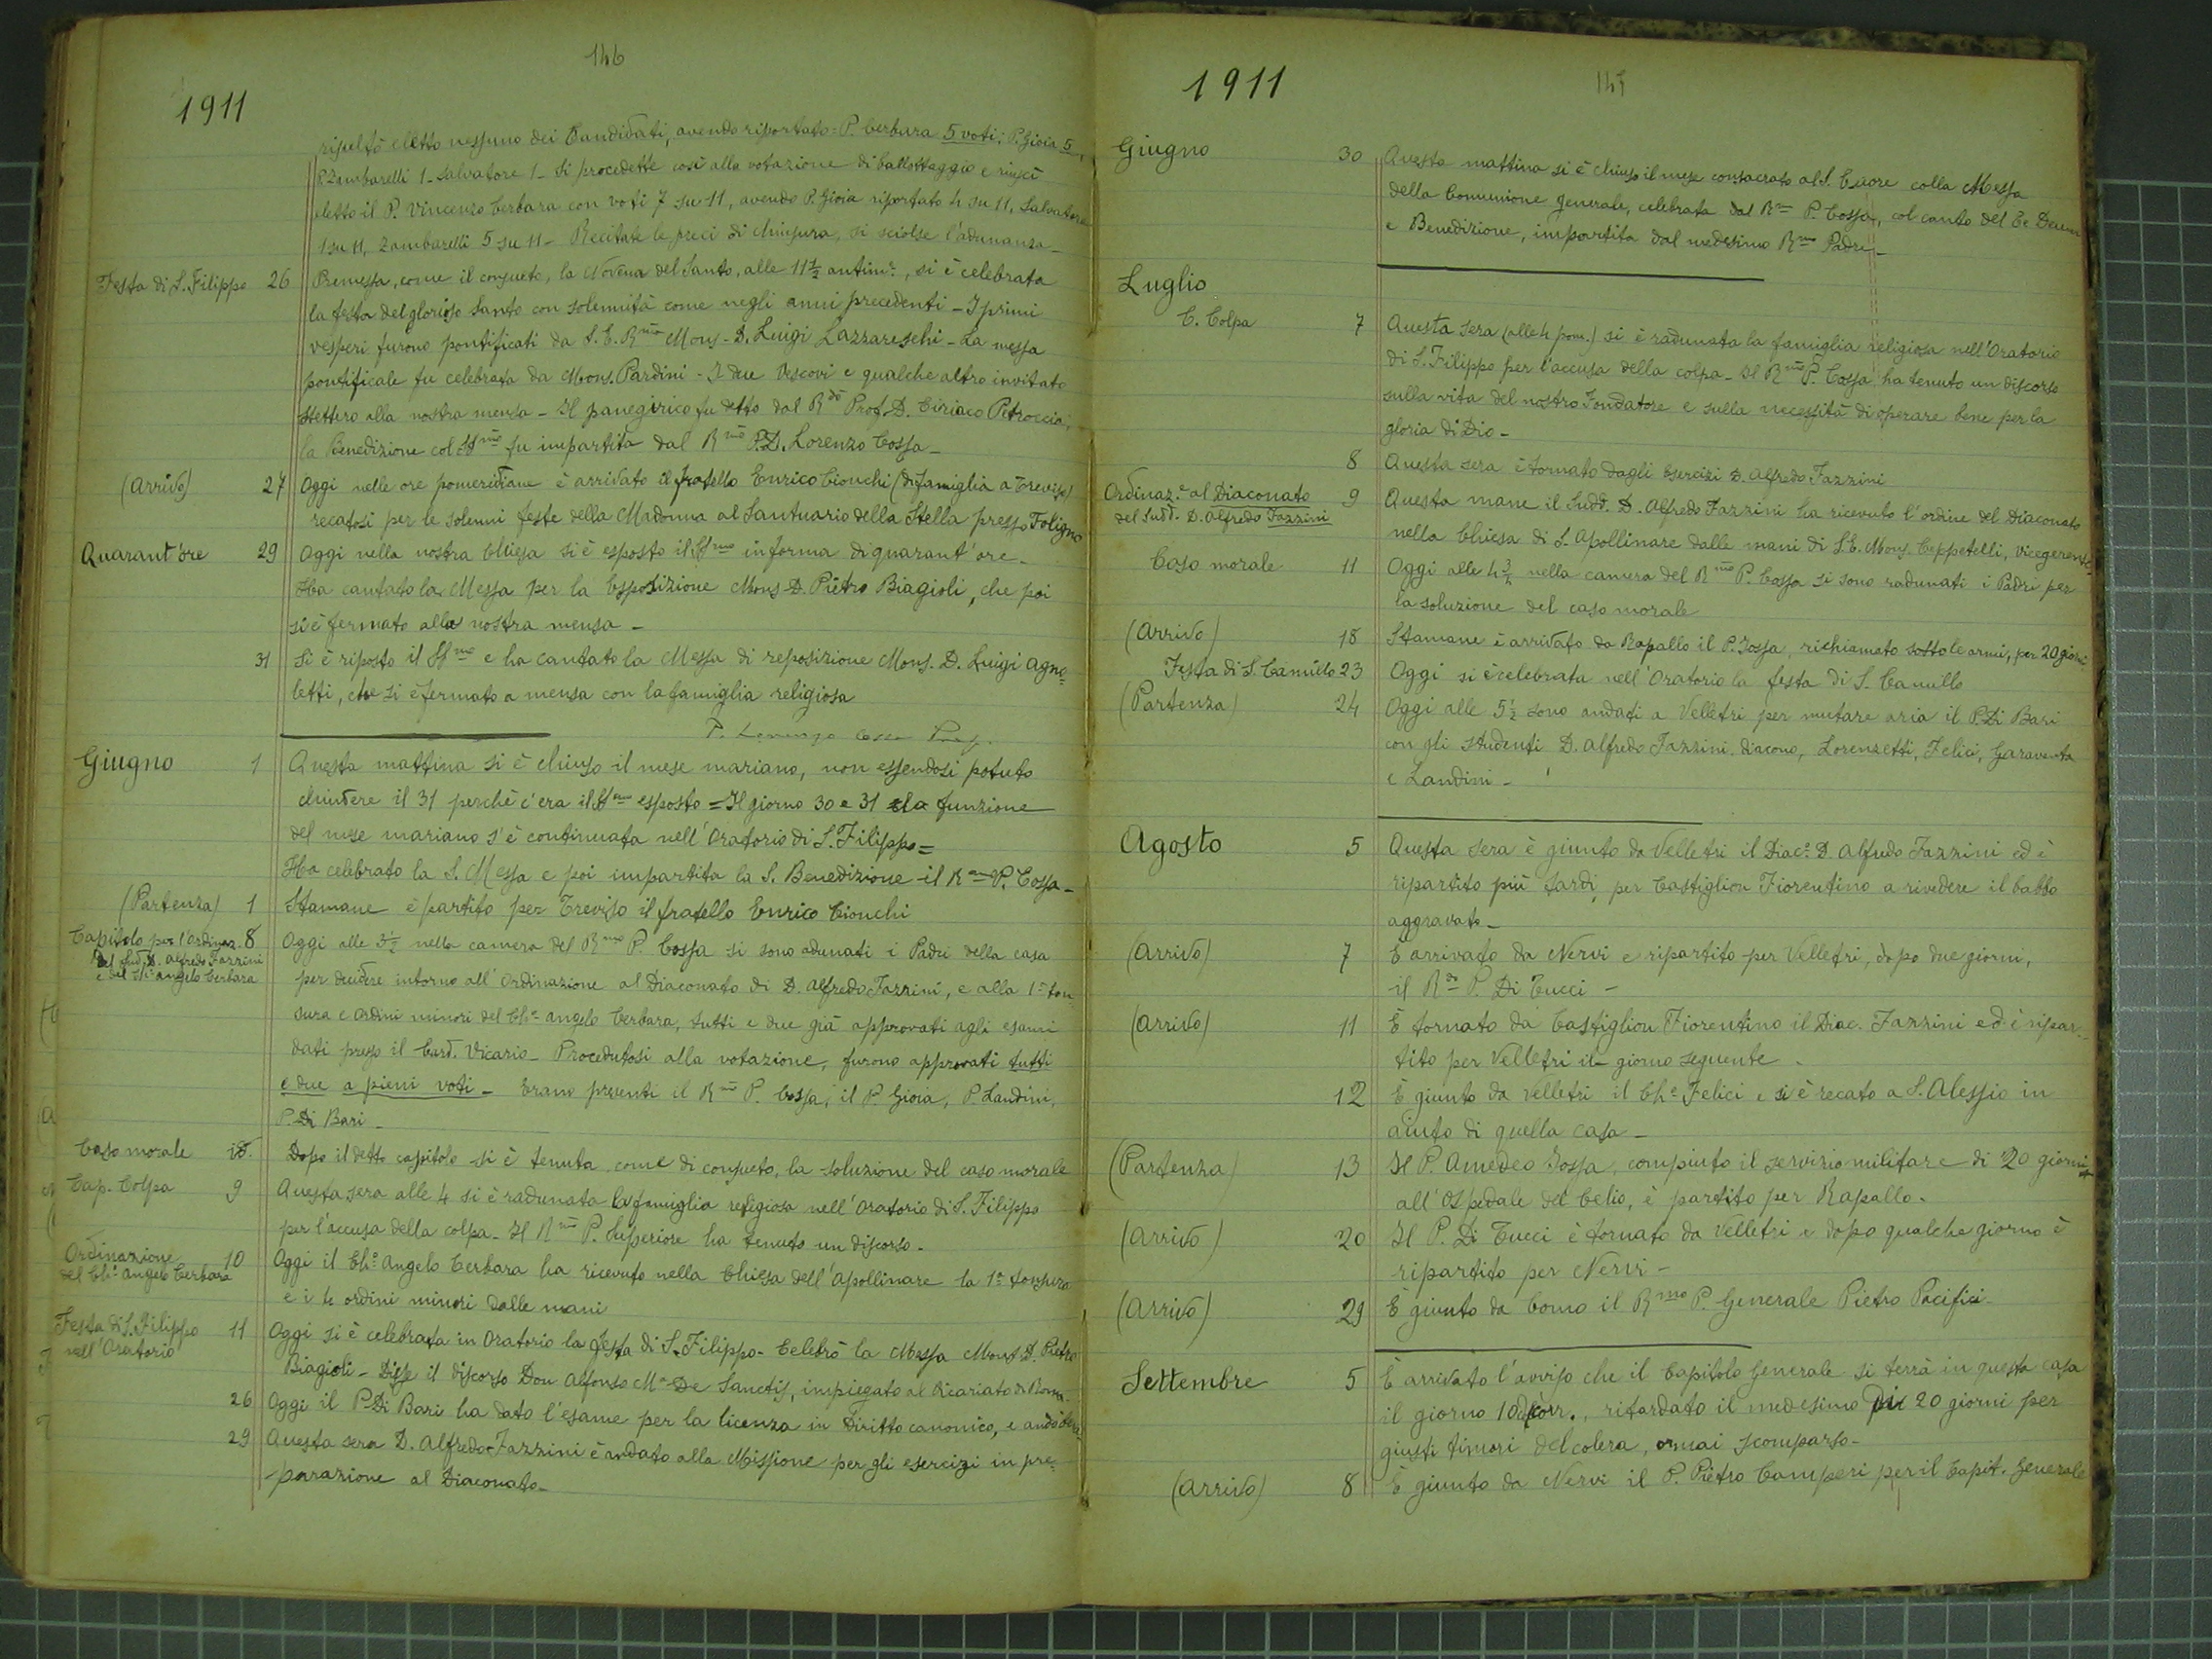 146
1911
risultò eletto nessuno dei Candidati, avendo riportato: P. Cerbara 5 voti; P. Gioia 5,
P. Zambarelli 1 - Salvatore 1 - Si procedette così alla votazione di ballottaggio e riuscì
eletto il P. Vincenzo Cerbara con voti 7 su 11, avendo P. Gioia riportato 4 su 11, Salvatore
1 su 11, Zambarelli 5 su 11 - Recitate le preci di chiusura, si sciolse l'adunanza -
Festa di S. Filippo 26 Premessa, come il consueto, la Novena del Santo, alle 11½ antim.e, si è celebrata
la festa del glorioso Santo con solennità come negli anni precedenti - I primi
vesperi furono pontificati da S. E. Rmo Mons. D. Luigi Lazzareschi - La messa
pontificale fu celebrata da Mons. Pardini - I due Vescovi e qualche altro invitato
stettero alla nostra mensa - Il panegirico fu detto dal Rdo Prof. D. Ciriaco Petroccia;
la Benedizione col SSmo fu impartita dal Rmo P. D. Lorenzo Cossa -
(Arrivo) 27 Oggi nelle ore pomeridiane è arrivato il fratello Enrico Cionchi (di famiglia a Treviso)
recatosi per le solenni feste della Madonna al Santuario della Stella presso Foligno
Quarant'ore 29 Oggi nella nostra Chiesa si è esposto il SSmo in forma di quarant'ore -
Ha cantato la Messa per la Esposizione Mons. D. Pietro Biagioli, che poi
si è fermato alla nostra mensa -
31 Si è riposto il SSmo e ha cantato la Messa di reposizione Mons. D. Luigi Agno=
letti, che si è fermato a mensa con la famiglia religiosa
P. Lorenzo Cossa Prep.
Giugno 1 Questa mattina si è chiuso il mese mariano, non essendosi potuto
chiudere il 31 perchè c'era il SSmo esposto = Il giorno 30 e 31 la funzione
del mese mariano s'è continuata nell'Oratorio di S. Filippo =
Ha celebrato la S. Messa e poi impartita la S. Benedizione il Rmo P. Cossa -
(Partenza) 1 Stamane è partito per Treviso il fratello Enrico Cionchi
Capitolo per l'Ordinaz. 8 Oggi alle 3½ nella camera del Rmo P. Cossa si sono adunati i Padri della casa
del Sud. D. Alfredo Fazzini
e del Ch.o Angelo Cerbara
per decidere intorno all'Ordinazione al Diaconato di D. Alfredo Fazzini, e alla 1a ton-
sura e Ordini minori del Ch.o Angelo Cerbara, tutti e due già approvati agli esami
dati presso il Card. Vicario - Procedutosi alla votazione, furono approvati tutti
e due a pieni voti - Erano presenti il Rmo P. Cossa, il P. Gioia, P. Landini,
P. Di Bari -
Caso morale id. Dopo il detto capitolo si è tenuta come di consueto, la soluzione del caso morale
Cap. Colpa 9 Questa sera alle 4 si è radunata la famiglia religiosa nell'Oratorio di S. Filippo
per l'accusa della colpa - Il Rmo P. Superiore ha tenuto un discorso -
Ordinazione 10 Oggi il Ch.o Angelo Cerbara ha ricevuto nella Chiesa dell'Apollinare la 1a tonsura
del Ch.o Angelo Cerbara
e i 4 ordini minori dalle mani
Festa di S. Filippo 11 Oggi si è celebrata in Oratorio la festa di S. Filippo - Celebrò la Messa Mons. D. Pietro
nell'Oratorio
Biagioli - Disse il discorso Don Alfonso M.a De Sanctis, impiegato al Vicariato di Roma
26 Oggi il P. Di Bari ha dato l'esame per la licenza in Diritto canonico, e andò bene
29 Questa sera D. Alfredo Fazzini è andato alla Missione per gli esercizi in pre=
parazione al Diaconato -
1911
147
Giugno 30 Questa mattina si è chiuso il mese consacrato al S. Cuore colla Messa
della Comunione generale, celebrata dal Rmo P. Cossa, col canto del Te Deum
e Benedizione, impartita dal medesimo Rmo Padre -
Luglio
C. Colpa 7 Questa sera (alle 4 pom.) si è radunata la famiglia religiosa nell'Oratorio
di S. Filippo per l'accusa della colpa - Il Rmo P. Cossa ha tenuto un discorso
sulla vita del nostro Fondatore e sulla necessità di operare bene per la
gloria di Dio -
8 Questa sera è tornato dagli Esercizi D. Alfredo Fazzini
Ordinaz.e al Diaconato 9 Questa mane il Sudd. D. Alfredo Fazzini ha ricevuto l'ordine del Diaconato
del Sudd. D. Alfredo Fazzini
nella Chiesa di S. Apollinare dalle mani di S. E. Mons. Ceppetelli, Vicegerente
Caso morale 11 Oggi alle 4¾ nella camera del Rmo P. Cossa si sono radunati i Padri per
la soluzione del caso morale
(Arrivo) 18 Stamane è arrivato da Rapallo il P. Jossa, richiamato sotto le armi, per 20 giorni
Festa di S. Camillo 23 Oggi si è celebrata nell'Oratorio la festa di S. Camillo
(Partenza) 24 Oggi alle 5½ sono andati a Velletri per mutare aria il P. Di Bari
con gli studenti D. Alfredo Fazzini diacono, Lorenzetti, Felici, Garaventa
e Landini -
Agosto 5 Questa sera è giunto da Velletri il Diac.o D. Alfredo Fazzini ed è
ripartito più tardi per Castiglion Fiorentino a rivedere il babbo
aggravato -
(Arrivo) 7 È arrivato da Nervi e ripartito per Velletri, dopo due giorni,
il Rdo P. Di Tucci -
(Arrivo) 11 È tornato da Castiglion Fiorentino il Diac. Fazzini ed è ripar-
tito per Velletri il giorno seguente -
12 È giunto da Velletri il Ch.o Felici e si è recato a S. Alessio in
aiuto di quella casa -
(Partenza) 13 Il P. Amedeo Jossa, compiuto il servizio militare di 20 giorni
all'Ospedale del Celio, è partito per Rapallo -
(Arrivo) 20 Il P. Di Tucci è tornato da Velletri e dopo qualche giorno è
ripartito per Nervi -
(Arrivo) 29 È giunto da Como il Rmo P. Generale Pietro Pacifici -
Settembre 5 È arrivato l'avviso che il Capitolo Generale si terrà in questa casa
il giorno 10 corr., ritardato il medesimo di 20 giorni per
giusti timori del colera, ormai scomparso -
(Arrivo) 8 È giunto da Nervi il P. Pietro Camperi per il Capit. Generale